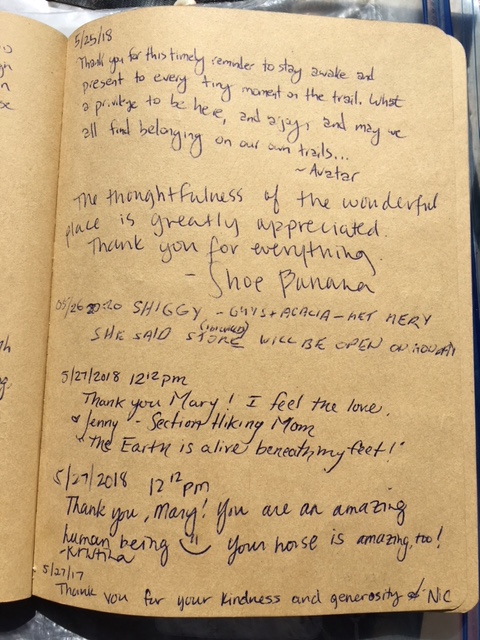 5/25/18
Thank you for this timely reminder to stay awake and
present to every tiny moment on the trail. What
a privilege to be here, and a joy, and may we
all find belonging on our own trails...
~ Avatar
The thoughtfulness of the wonderful
place is greatly appreciated.
Thank you for everything.
- Shoe Banana
05/26 SHIGGY - GUYS + ACACIA - MET MERY
SHE SAID STORE WILL BE OPEN ON MONDAY
5/27/2018 12¹² pm
Thank you Mary! I feel the love.
Jenny - Section Hiking Mom
"The Earth is alive beneath my feet!"
5/27/2018 12¹² pm
Thank you, Mary! You are an amazing
human being your horse is amazing, too!
-Kristina
5/27/17
Thank you for your kindness and generosity Nic